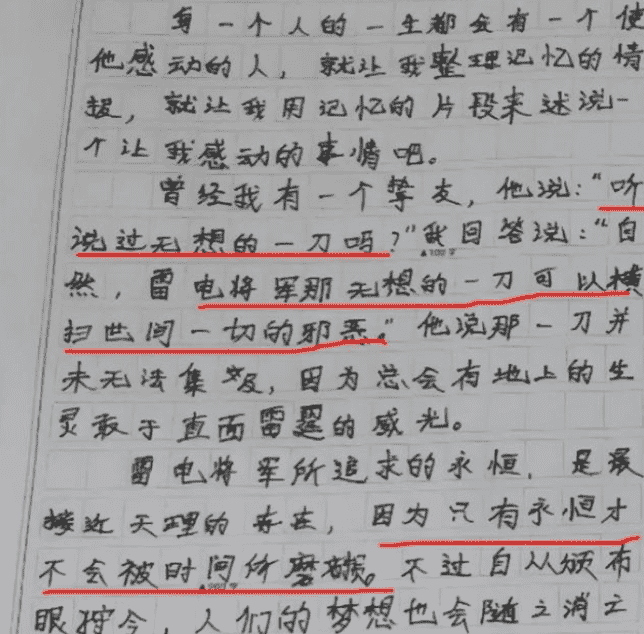 每一个人的一生都会有一个使
他感动的人，就让我整理记忆的情
报，就让我用记忆的片段来述说一
个让我感动的事情吧。
曾经我有一个挚友，他说：“听
说过无想的一刀吗？”我回答说：“自
▲100字
然，雷电将军那无想的一刀可以横
扫世间一切的邪恶。”他说那一刀并
未无法集级，因为总会有地上的生
灵敢于直面雷霆的威光。
雷电将军所追求的永恒，是最
接近天理的存在，因为只有永恒才
不会被时间所磨损。不过自从颁布
▲200字
眼狩令，人们的梦想也会随之消亡